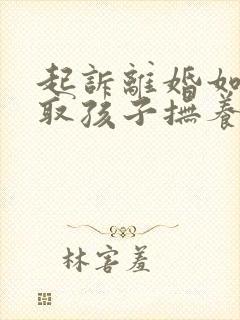 起訴離婚如
取孩子撫養
林害羞